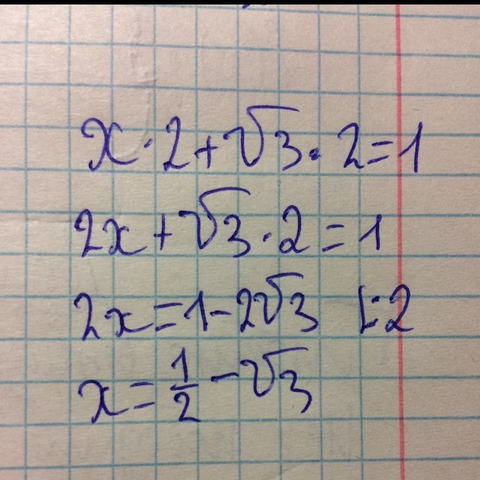 x·2+√3·2=1
2x+√3·2=1
2x=1-2√3 |:2
x=1/2-√3